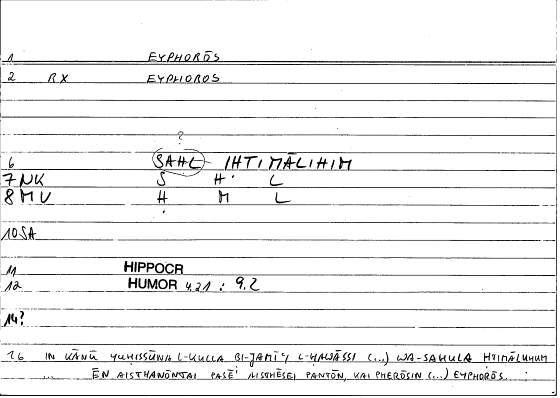 1 EYPHORŌS
2 RX EYPHOROS
?
6 SAHL IHTIMĀLIHIM
7 NK S Ḥ L
8 MV Ḥ M L
10 SA
11 HIPPOCR
12 HUMOR 4.21 : 9.2
14?
16 IN KĀNŪ YUHISSŪNA L-KULLA BI-JAMĪ'I L-HAWĀSSI (...) WA-SAHULA HTIMĀLUHUM
... ĒN AISTHANŌNTAI PASĒI AISTHĒSEI PANTŌN, KAI PHERŌSIN (...) EYPHORŌS.